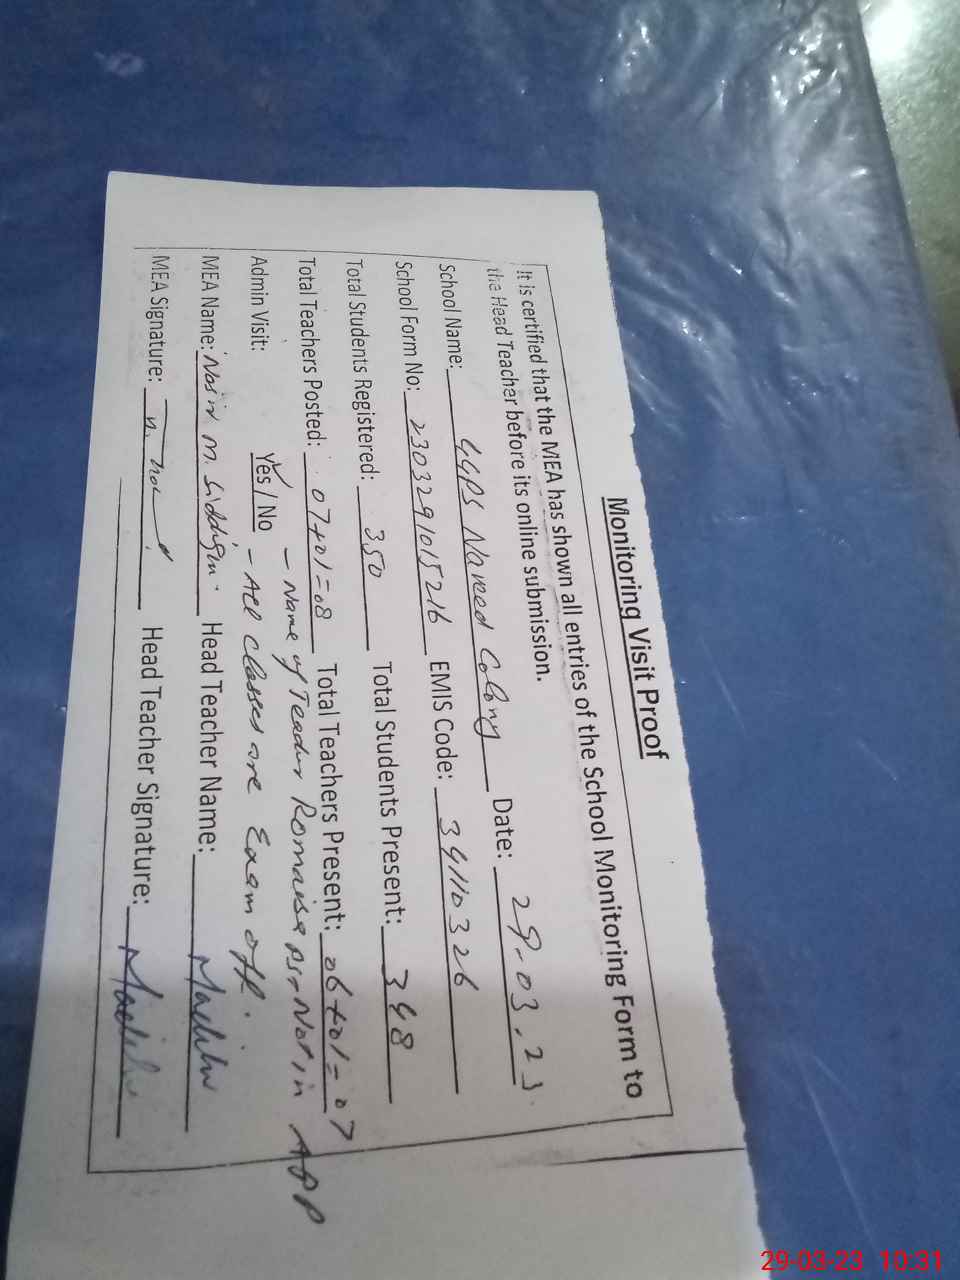 Monitoring Visit Proof
It is certified that the MEA has shown all entries of the School Monitoring Form to
the Head Teacher before its online submission.
School Name: GGPS Naveed Colony Date: 29.03.23.
School Form No: 2303291015216 EMIS Code: 39110326
Total Students Registered: 350 Total Students Present: 348
Total Teachers Posted: 07+01=08 Total Teachers Present: 06+01=07
- Name of Teacher Romaisa PST Not in APP
Admin Visit: Yes / No - All classes are Exam off.
MEA Name: M. Siddiqui Head Teacher Name:
MEA Signature: Head Teacher Signature:
29-03-23 10:31